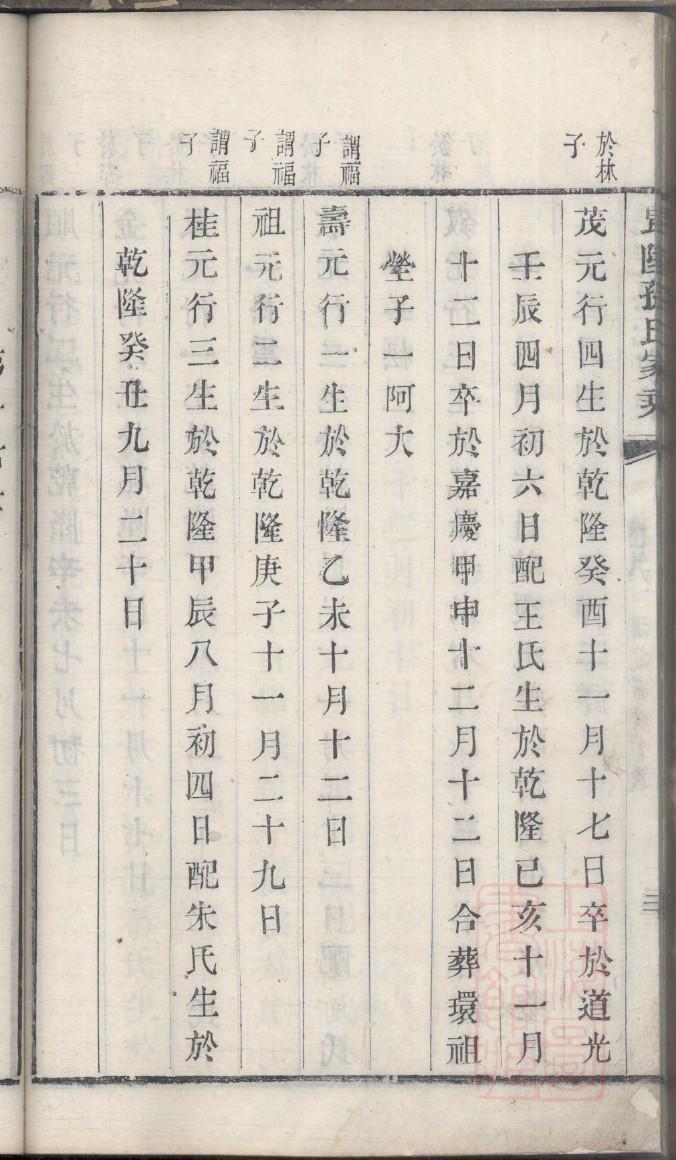 於林子
茂元行四生於乾隆癸酉十一月十七日卒於道光
壬辰四月初六日配王氏生於乾隆己亥十一月
十二日卒於嘉慶甲申十二月十二日合葬環祖
塋子一阿大
謂福子
壽元行一生於乾隆乙未十月十二日
謂福子
祖元行二生於乾隆庚子十一月二十九日
謂福子
桂元行三生於乾隆甲辰八月初四日配朱氏生於
乾隆癸丑九月二十日